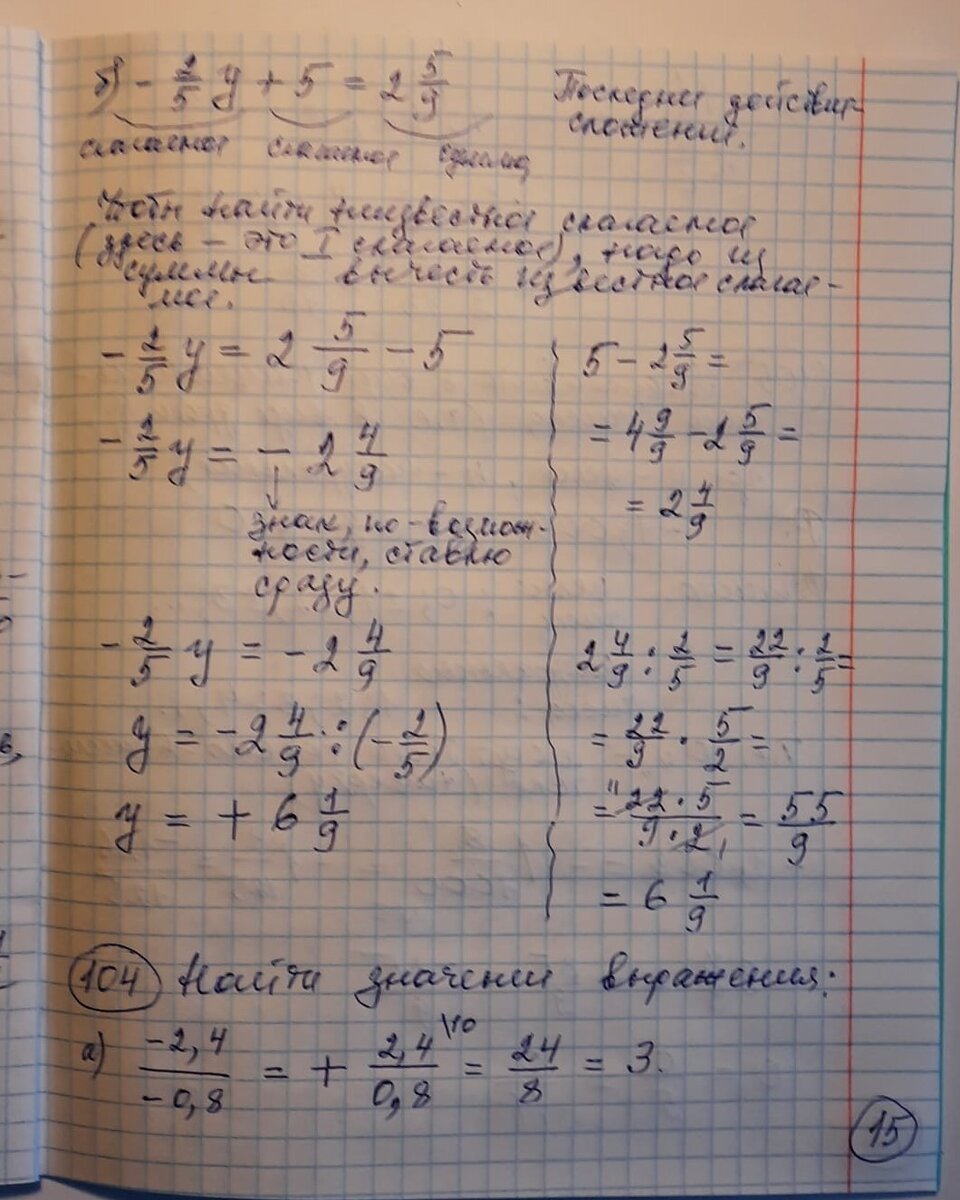 б) - 2/5 y + 5 = 2 5/9
Последнее действие сложения.
слагаемое слагаемое сумма
Чтобы найти неизвестное слагаемое
(здесь - это I слагаемое), надо из
суммы вычесть известное слагае-
мое.
- 2/5 y = 2 5/9 - 5
- 2/5 y = - 2 4/9
знак, по-возмож-
ности, ставлю
сразу.
- 2/5 y = - 2 4/9
y = -2 4/9 : (- 2/5)
y = + 6 1/9
5 - 2 5/9 =
= 4 9/9 - 2 5/9 =
= 2 4/9
2 4/9 : 2/5 = 22/9 : 2/5 =
= 22/9 · 5/2 =
= 22 · 5 / 9 · 2 = 55/9
= 6 1/9
104 Найти значений выражения:
а) -2,4 / -0,8 = + 2,4 \10 / 0,8 = 24/8 = 3.
15